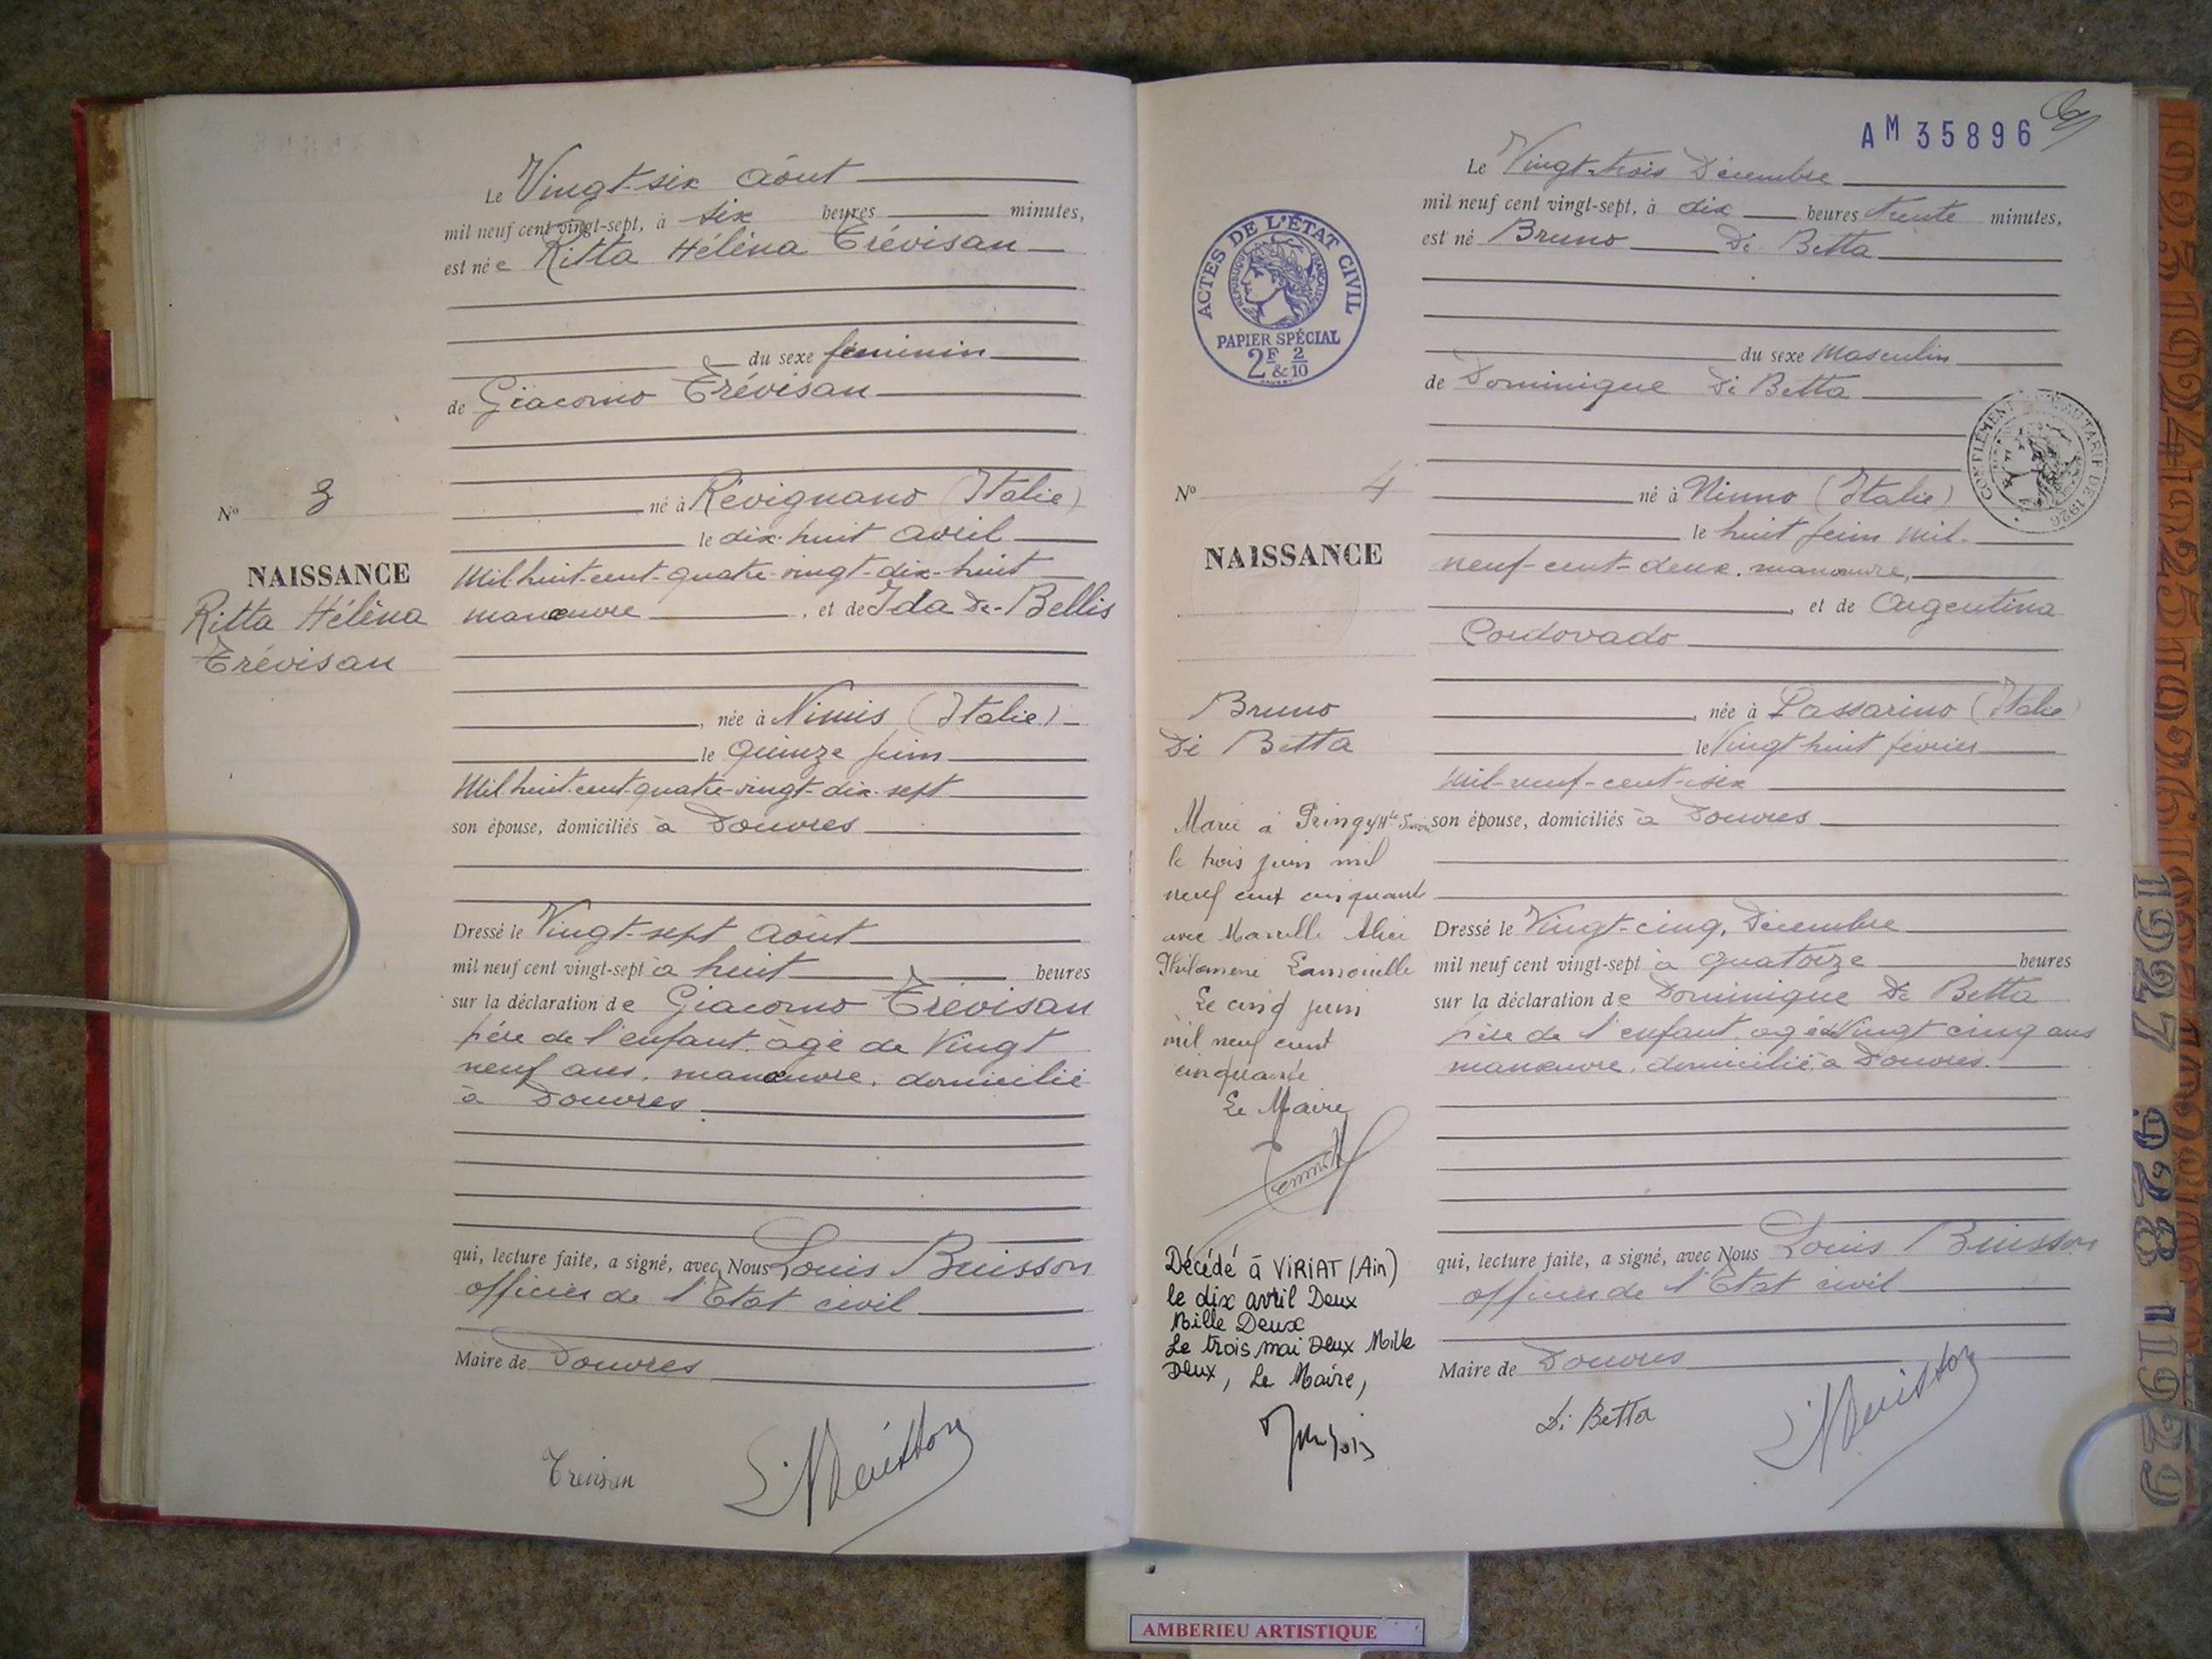 Le Vingt-six Août
mil neuf cent vingt-sept, à six heures minutes,
est née Ritta Héléna Trévisan
du sexe féminin
de Giacomo Trévisan
né à Révignano (Italie)
le dix-huit avril
Mil-huit-cent-quatre-vingt-dix-huit
manœuvre, et de Ida De-Bellis
née à Nimis (Italie)
le quinze juin
Mil huit-cent quatre-vingt-dix-sept
son épouse, domiciliés à Douvres
Dressé le Vingt-sept Août
mil neuf cent vingt-sept à huit heures
sur la déclaration de Giacomo Trévisan
père de l'enfant âgé de Vingt
neuf ans, manœuvre, domicilié
à Douvres
qui, lecture faite, a signé, avec Nous Louis Buisson
officier de l'Etat civil
Maire de Douvres
Trevisan
L. Buisson
No 3
NAISSANCE
Ritta Héléna
Trévisan
AM 35896
Le Vingt-trois Décembre
mil neuf cent vingt-sept, à dix heures trente minutes,
est né Bruno Di Betta
du sexe Masculin
de Dominique Di Betta
né à Ninno (Italie)
le huit juin Mil-
neuf-cent-deux, manœuvre,
et de Argentina
Cordovado
née à Passarino (Italie)
le Vingt huit février
Mil-neuf-cent-six
son épouse, domiciliés à Douvres
Dressé le Vingt-cinq, Décembre
mil neuf cent vingt-sept à quatorze heures
sur la déclaration de Dominique Di Betta
père de l'enfant, agé de Vingt cinq ans
manœuvre, domicilié à Douvres.
qui, lecture faite, a signé, avec Nous Louis Buisson
officier de l'Etat civil
Maire de Douvres
Di Betta
L. Buisson
ACTES DE L'ÉTAT CIVIL
RÉPUBLIQUE FRANÇAISE
PAPIER SPÉCIAL
2F & 2/10
COMPLÉMENT TARIF DE 1926
No 4
NAISSANCE
Bruno
Di Betta
Marié à Pringy Hte
le trois juin mil
neuf cent cinquante
avec Marcelle Alice
Philomène
Le cinq juin
mil neuf cent
cinquante
Le Maire
Décédé à VIRIAT (Ain)
le dix avril Deux
Mille Deux
Le trois mai Deux Mille
Deux, Le Maire,
1927
1928
1929
AMBERIEU ARTISTIQUE